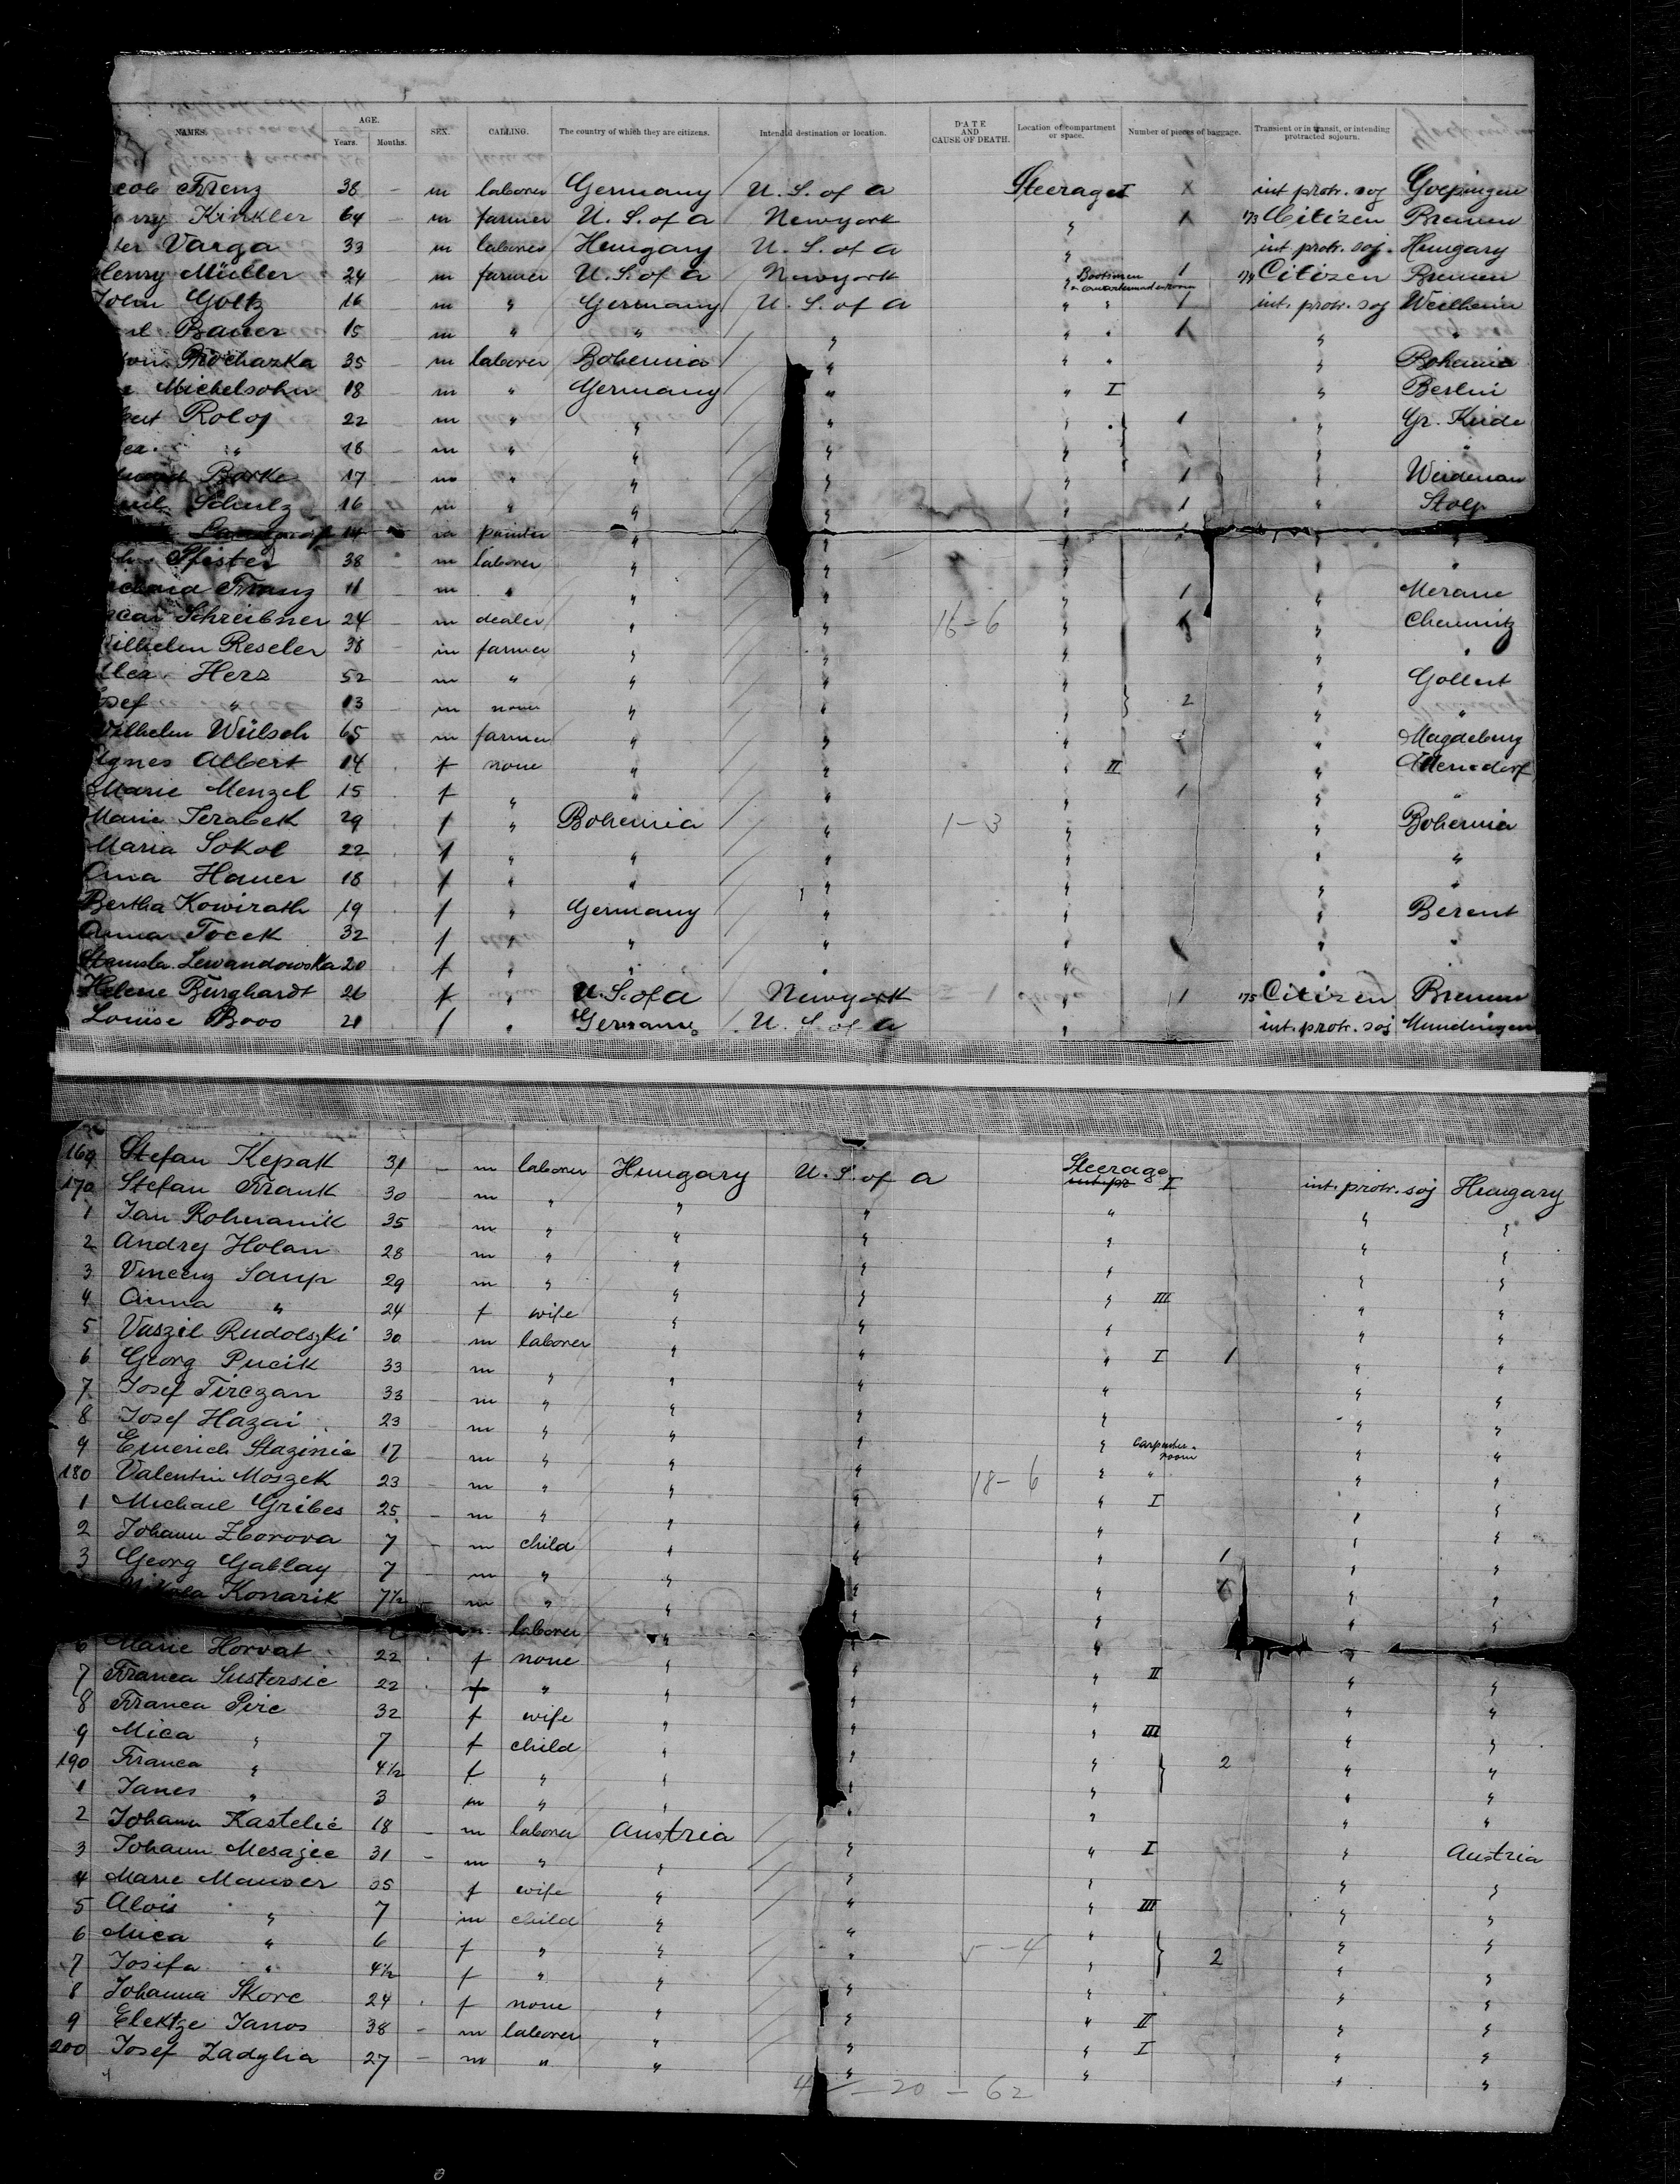 NAMES. AGE. Years. Months. SEX. CALLING. The country of which they are citizens. Intended destination or location. DATE AND CAUSE OF DEATH. Location of compartment or space. Number of pieces of baggage. Transient or in transit, or intending protracted sojourn.
cob Frenz 38 - m laborer Germany U. S. of a Steerage I int protr. soj Goepingen
enry Kinkler 64 - m farmer U. S. of a Newyork " 1 173 Citizen Bremen
ter Varga 33 m laborer Hungary U. S. of a " int. protr. soj. Hungary
Henry Müller 24 - m farmer U. S. of a Newyork " 1 174 Citizen Bremen
John Goltz 16 - m " Germany U. S. of a " " 1 int. protr. soj Weilheim
Bauer 15 - m " " " " " 1 " "
Prochazka 35 - m laborer Bohemia " " " " Bohemia
Michelsohn 18 - m " Germany " " I " Berlin
Roloj 22 - m " " " " 1 "
" 18 - m " " " " " "
Barke 17 - m " " " " 1 "
Schulz 16 m " " " " 1 " Stolp
14 m painter " " " " "
Pfister 38 m laborer " " " " "
Franz 11 - m " " " " 1 " Merane
scar Schreibner 24 - m dealer " " 16-6 " 1 " Chemnitz
Wilhelm Reseler 38 - m farmer " " " " "
Alex. Herz 52 - m " " " " " Gollert
osef " 13 - m none " " " } 2 " "
Wilhelm Wülsch 65 m farmer " " " " Magdeburg
Agnes Albert 14 . f none " " " II "
Marie Menzel 15 f " " " " 1 " "
Marie Jerabek 29 . f " Bohemia " 1-3 " " Bohemia
Maria Sokol 22 . f " " " " " "
Anna Hauer 18 . f " " " " " "
Bertha Kowirath 19 . f " Germany " " " Berent
Anna Tocek 32 . f " " " " " "
Stanisla. Lewandowska 20 . f " " " " "
Helene Burghardt 26 . f " U. S. of a Newyork " 1 175 Citizen Bremen
Louise Boos 21 . f " Germany U. S. of a " int. protr. soj Mundingen
169 Stefan Kepak 31 - m laborer Hungary U. S. of a Steerage I int. protr. soj Hungary
170 Stefan Frank 30 - m " " " " " "
1 Jan Rohmanik 35 - m " " " " " "
2 Andrej Holan 28 - m " " " " " "
3 Vincenz Saup 29 - m " " " " III " "
4 Anna " 24 - f wife " " " " "
5 Vaszil Rudolszki 30 - m laborer " " " I 1 " "
6 Georg Pucik 33 - m " " " " " "
7 Josef Tirczan 33 - m " " " " " "
8 Josef Hazai 23 - m " " " " Carpenter room " "
9 Emerich Stazinie 17 - m " " " " " " "
180 Valentin Moszek 23 - m " " " 18-6 " I " "
1 Michael Gribes 25 - m " " " " " "
2 Johann Zborova 7 - m child " " " 1 " "
3 Georg Gablay 7 - m " " " " " "
Konarik 7½ - m " " " " " "
laborer " " " "
6 Marie Horvat 22 . f none " " " II " "
7 Franca Sustersic 22 . f " " " " " "
8 Franca Pirc 32 f wife " " " III " "
9 Mica " 7 f child " " " } 2 " "
190 Franca " 4½ f " " " " " "
1 Janes " 3 m " " " " " "
2 Johann Kastelic 18 - m laborer Austria " " I " Austria
3 Johann Mesajec 31 - m " " " " " "
4 Marie Mauser 35 f wife " " " III " "
5 Alois " 7 m child " " " " "
6 Mica " 6 f " " " 5-4 " } 2 " "
7 Josifa " 4½ f " " " " " "
8 Johanna Skorc 24 . f none " " " II " "
9 Elektze Janos 38 - m laborer " " " I " "
200 Josef Zadylia 27 - m " " " " " "
20 - 62